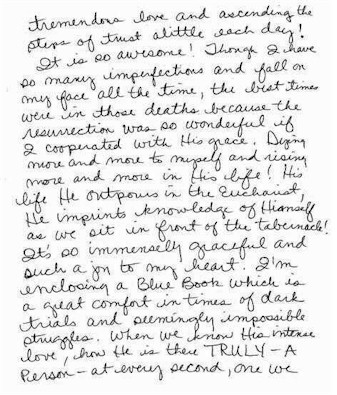 tremendous love and ascending the
steps of trust alittle each day!
It is so awesome! Though I have
so many imperfections and fall on
my face all the time, the best times
were in those deaths because the
resurrection was so wonderful if
I cooperated with His grace. Dying
more and more to myself and rising
more and more in His life! His
life He outpours in the Eucharist,
He imprints knowledge of Himself
as we sit in front of the tabernacle!
It's so immensely graceful and
such a joy to my heart. I'm
enclosing a Blue Book which is
a great comfort in times of dark
trials and seemingly impossible
struggles. When we know His intense
love, how He is there TRULY - A
Person - at every second, one we